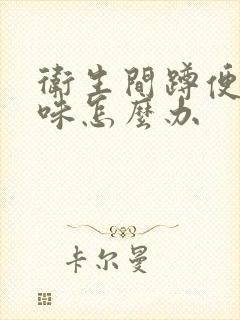 衛生間蹲便
味怎麼办
卡尔曼